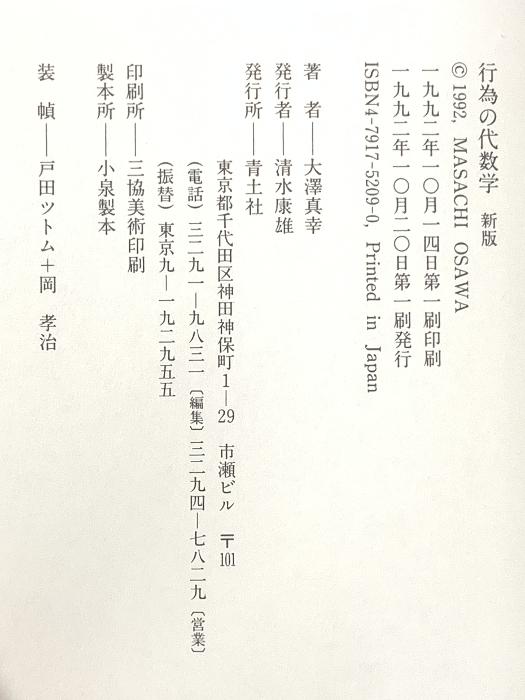 行為の代数学 新版
© 1992, MASACHI OSAWA
一九九二年一〇月一四日第一刷印刷
一九九二年一〇月二〇日第一刷発行
ISBN4-7917-5209-0, Printed in Japan
著 者——大澤真幸
発行者——清水康雄
発行所——青土社
東京都千代田区神田神保町1—29 市瀬ビル 〒101
(電話) 三二九一—九八三一〔編集〕三二九四—七八二九〔営業〕
(振替) 東京九—一九二九五五
印刷所——三協美術印刷
製本所——小泉製本
装 幀——戸田ツトム+岡 孝治